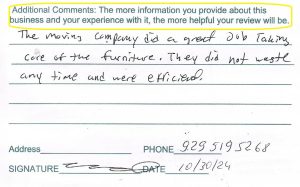 Additional Comments: The more information you provide about this
business and your experience with it, the more helpful your review will be.
The moving company did a great Job Taking
care of the furniture. They did not waste
any time and were efficient.
Address
PHONE 929 519 5268
SIGNATURE DATE 10/30/24